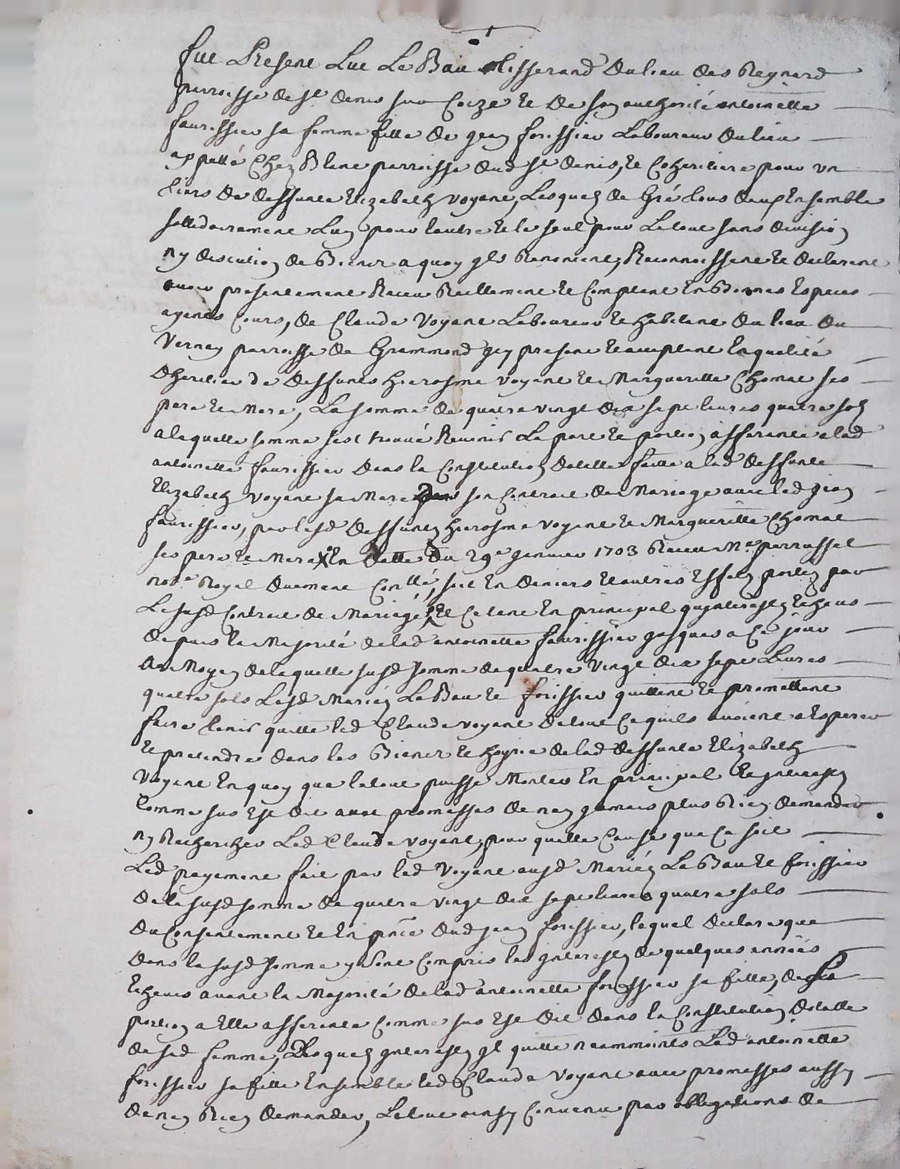 fut Present Luc Le Bau tisserand du lieu des Reynard
parroisse de st denis sur Coize et de son authorité antoinette
faurissier sa femme fille de jean forissier Laboureur du lieu
appellé Chez Blanc parroisse dud st denis, et Coheritiere pour un
tiers de deffunte Elizabeth voyant, Lesquels de gré tous deux Ensemble
sollidairement L'un pour lautre et le seul pour Le tout sans division
ny discution de Biens a quoy ils Renoncent, Reconnoissent et declarent
avoir presentement Receu Reellement et Comptant En Bonnes Especes
ayents Cours, de Claude voyant Laboureur et habitant du lieu du
Verney parroisse de Grammond icy present et acceptant En qualité
dheritier de deffunts hierosme voyant et Margueritte Thomas ses
pere et Mere, La somme de quatre vingt dix sept livres quatre sols
a laquelle somme sest trouvé Revenir La part et portion afferante a lad
antoinette faurissier dans la Constitution dotalle faitte a lad deffunte
Elizabeth voyant sa Mere par son Contract de Mariage avec led jean
faurissier, par lesd deffunts hierosme voyant et Margueritte Thomas
ses pere et Mere En datte du 29e janvier 1703 Receu Me perrussel
nore Royal duement Conllé, soit En deniers et autres Effets portés par
Le susd Contract de Mariage, Et Ce tant En principal qu'interests Echeus
depuis la Majorité de lad antoinette faurissier jusques a Ce jour
Au Moyen de laquelle susd somme de quatre vingt dix sept Livres
quatre sols Lesd Mariés Le Bau et forissier quittent et promettent
faire tenir quitte led Claude voyant de tout Ce quils avoient a Esperer
et pretendre dans les Biens et hoyrie de lad deffunte Elizabeth
Voyant En quoy que le tout puisse Monter En principal et interests
Comme sus est dit avec promesses de nen jamais plus Rien demander
ny Rechercher Led Claude voyant, pour quelle Cause que Ce soit
Led payement fait par led voyant ausd Mariés Le Bau et forissier
de la susd somme de quatre vingt dix sept livres quatre sols
du Consentement et En pnce dud jean forissier, lequel declare que
dans la susd somme y sont Compris les interests de quelques années
Echeus avant la Majorité de lad antoinette forissier sa fille, de sa
portion a Elle afferante Comme sus est dit dans la Constitution dotalle
de sad femme, Desquels interests il quitte neanmoints Lad antoinette
forissier sa fille Ensemble led Claude voyant avec promesses aussy
de nen Rien demander, Le tout ainsy Convenu par obligations de